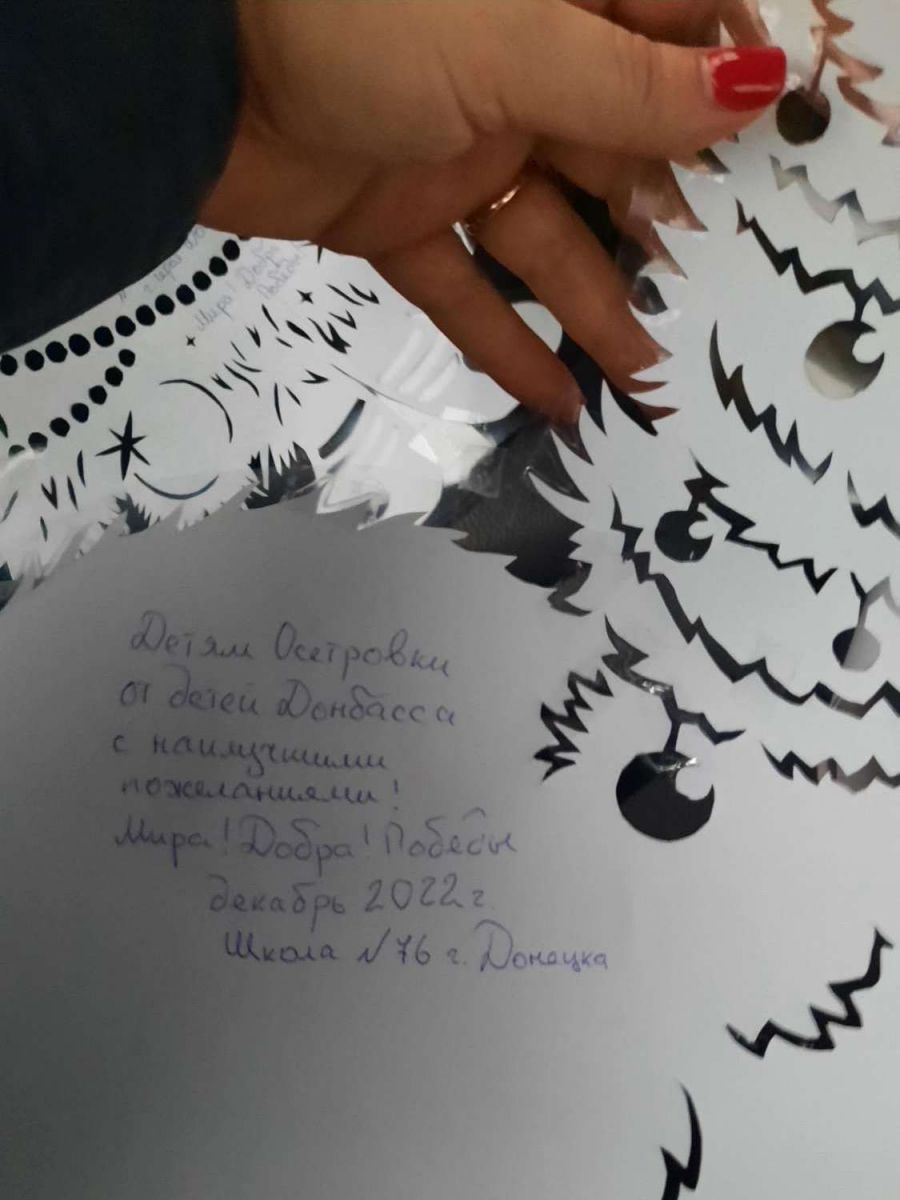 Мира! Добра!
Победы
Детям Осетровки
от детей Донбасса
с наилучшими
пожеланиями!
Мира! Добра! Победы
декабрь 2022 г.
Школа №76 г. Донецка